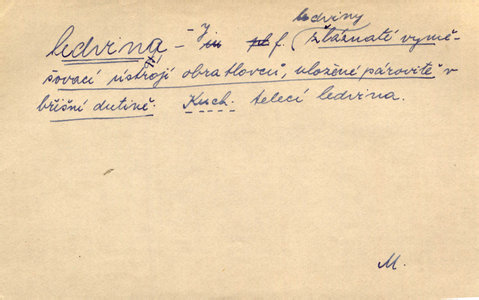 ledviny
ledvina – f. (žláznaté vymě-
šovací ústrojí obratlovců, uložené párovitě v
břišní dutině. Kuch. telecí ledvina.
M.